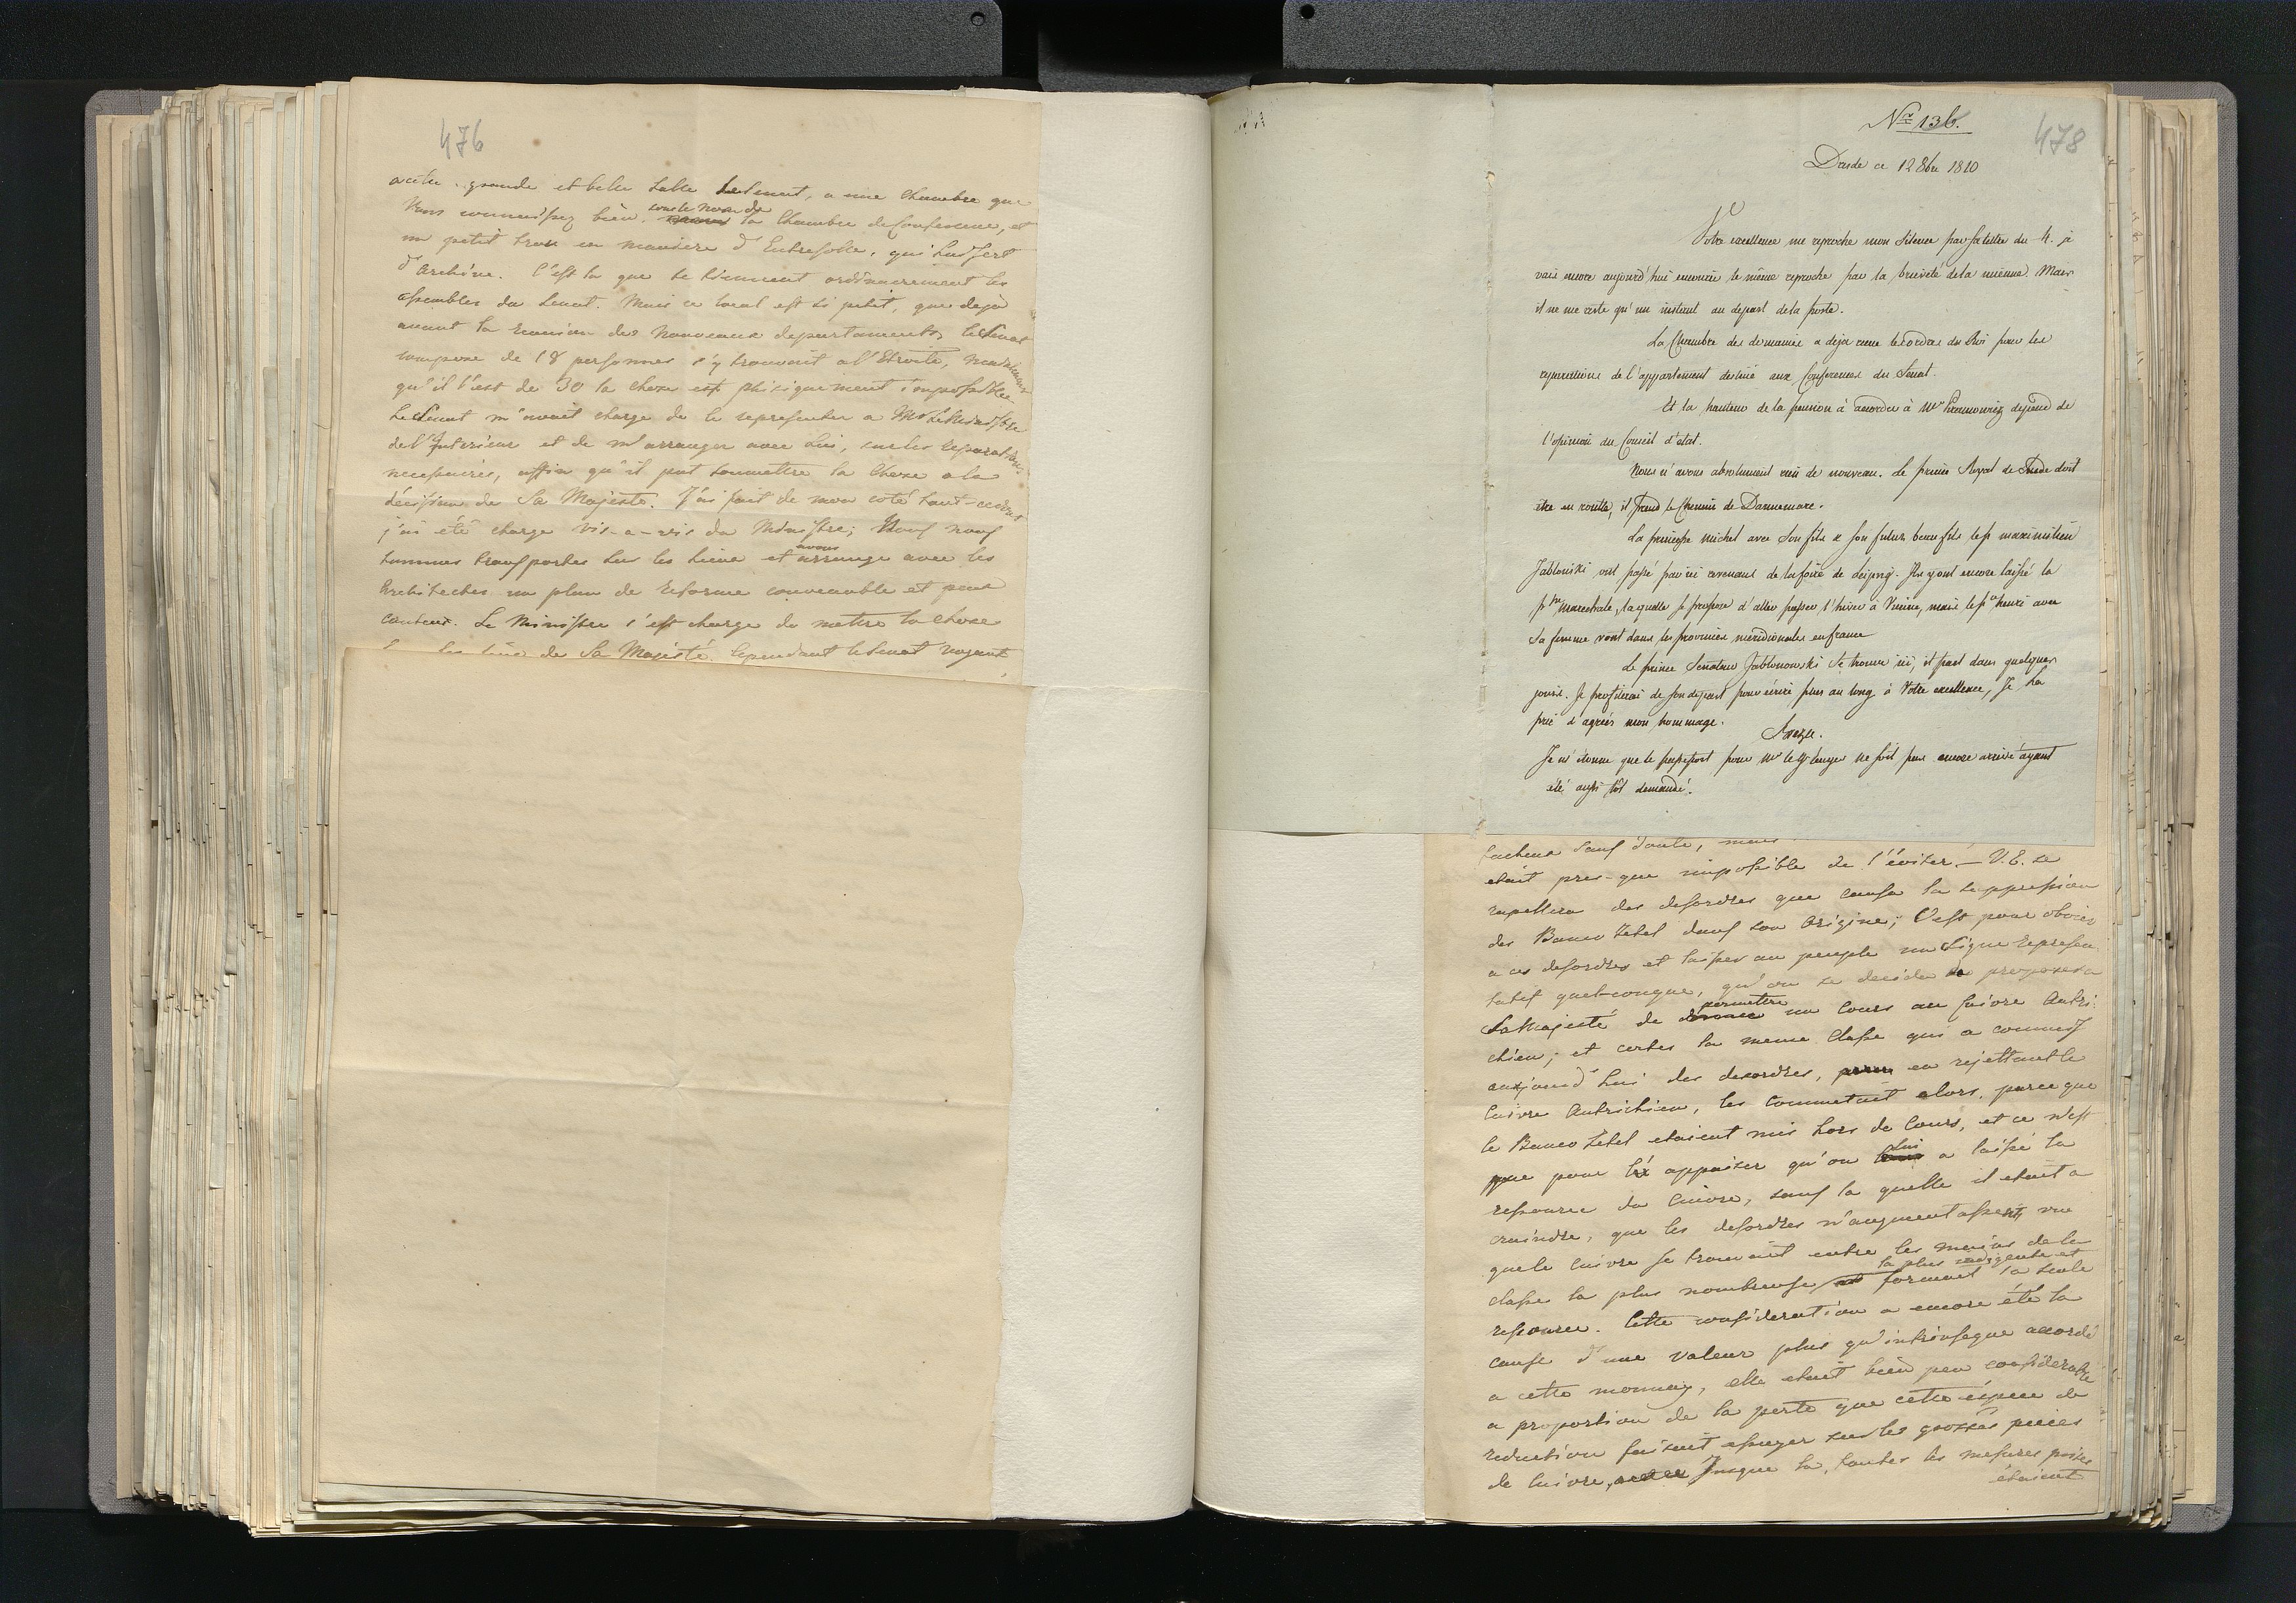 476
a cette grande et belle Salle du Senat, a une Chambre que
Vous connoissez bien, sous le Nom de la Chambre de Conference, et
un petit trou en maniere d'Entresolle, qui lui sert
d'Archive. C'est la que se tiennent ordinairement les
assemblées du Senat. Mais ce local est si petit, que deja
avant la reunion des Nouveaux departaments, le Senat
compose de 18 personnes s'y trouvait a l'Etroite, maintenant
qu'il l'est de 30 la chose est phisiquement impossible
Le Senat m'avait charge de le representer a Mr le Ministre
de l'Interieur et de m'arranger avec Lui, sur les reparations
necessaires, affin qu'il put soumettre la Chose a la
décision de Sa Majesté. J'ai fait de mon coté tout ce dont
j'ai été charge vis-a-vis du Ministre; Nous nous
sommes transportes sur les Lieux et avons arrange avec les
Architectes un plan de reforme convenable et peu
couteux. Le Ministre s'est charge de mettre la chose
de Sa Majesté. Cependant le Senat voyant
Nro 136.
478
Dresde ce 12 8bre 1810
Votre excellence me reproche mon silence par sa lettre du 4. je
vais encore aujourd'hui encourir le même reproche par la brieveté de la mienne. Mais
il ne me reste qu'un instant au depart de la poste.
La Chambre des domaines a deja recue les ordres du Roi pour les
reparations de l'appartement destiné aux Conferences du Senat.
Et la hauteur de la pension à accorder à Mr depend de
l'opinion du Conseil d'etat.
Nous n'avons absolument rien de nouveau. Le prince Royal de Suede doit
etre en route, il prend le Chemin de Dannemarc.
La princesse Michel avec son fils et son futur beau fils le p. maximilien
Jablonski ont passé par ici revenant de la foire de Leipzig. Ils y ont encore laissé la
pse marechale, laquelle se propose d'aller passer l'hiver à Vienne, mais le pce henri avec
sa femme vont dans les provinces meridionales en france
Le prince Senateur Jablonowski se trouve ici, il part dans quelques
jours. Je profiterai de son depart pour écrire plus au long à Votre excellence, Je La
prie d'agréer mon hommage.
Breza.
Je m'étonne que le passeport pour Mr le ne soit pas encore arrivé ayant
été aussi tôt demandé.
facheux sans doute, mais
etait pres-que impossible de l'éviter. — V. E. se
rapellera des desordres que causa la suppression
des Banco Zetel dans son Origine; C'est pour obvier
a ces desordres et laisser au peuple un Signe represen
tatif quelconque, qu'on se decida de proposer a
Sa Majesté de permettre un cours au Cuivre Autri-
chien; et certes la meme Classe qui a commis
aujourd'hui des desordres, en rejettant le
Cuivre Autrichien, les commettait alors, parce que
le Banco Zetel etaient mis hors de Cours, et ce n'est
que pour les appaiser qu'on lui a laissé la
ressource du Cuivre, sans la quelle il etait a
craindre, que les desordres n'augmentassent, vu
que le cuivre se trouvait entre les mains de la
classe la plus nombreuse, la plus indigente et formait la seule
ressource. Cette consideration a encore été la
cause d'une valeur plus qu'intrinseque accordé
a cette monnaye, elle etait bien peu considerable
a proportion de la perte que cette espece de
reduction faisait essuyer sur les grosses pieces
de Cuivre, Jusque la, toutes les mesures prises
étaient